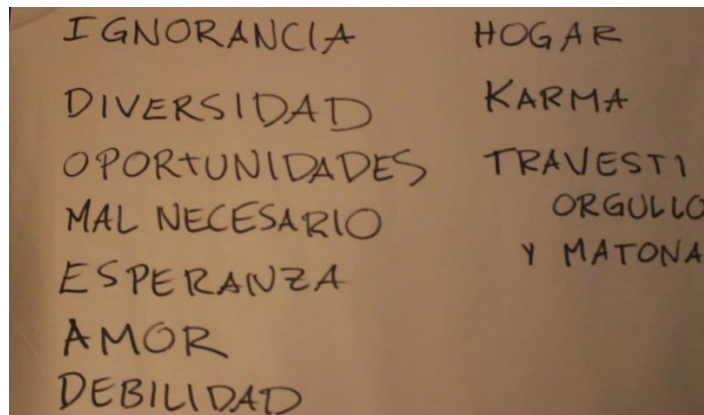 IGNORANCIA
DIVERSIDAD
OPORTUNIDADES
MAL NECESARIO
ESPERANZA
AMOR
DEBILIDAD
HOGAR
KARMA
TRAVESTI
ORGULLO
Y MATONA